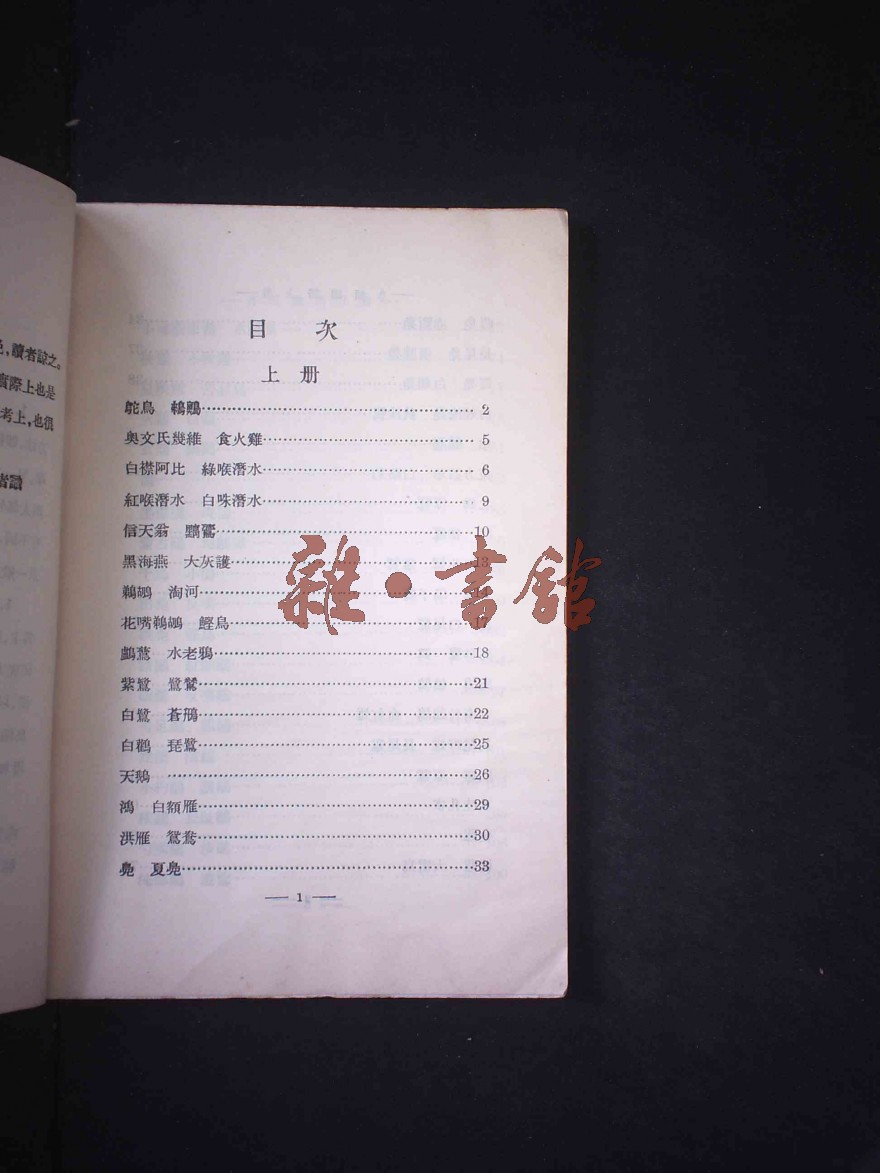 目 次
上册
鴕鳥 鶓……2
奥文氏幾維 食火雞……5
白襟阿比 綠喉潛水……6
紅喉潛水 白咮潛水……9
信天翁 鸊鷉……10
黑海燕 大灰護……13
鵜鶘 淘河……14
花嘴鵜鶘 鰹鳥……17
鸕鶿 水老鴉……18
紫鷺 鷺鷥……21
白鷺 蒼鳽……22
白鸛 琵鷺……25
天鵝……26
鴻 白額雁……29
洪雁 鴛鴦……30
鳧 夏鳧……33
— 1 —
,讀者諒之。
實際上也是
考上,也很
者識
雜·書館